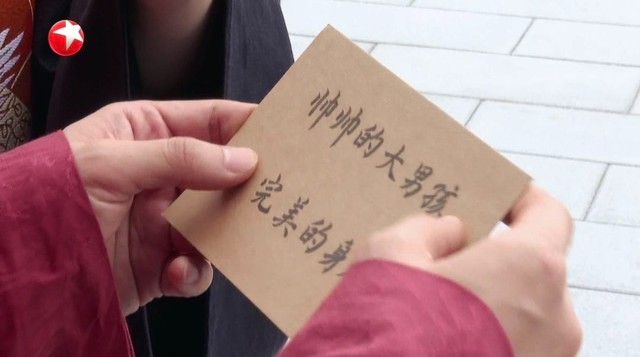 帅帅的大男孩
完美的身